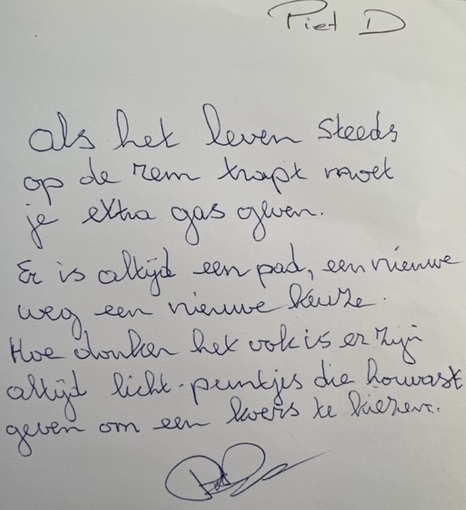 Piet D
als het leven steeds
op de rem trapt moet
je extra gas geven.
Er is altijd een pad, een nieuwe
weg een nieuwe keuze.
Hoe donker het ook is er zijn
altijd licht-puntjes die houvast
geven om een koers te kiezen.